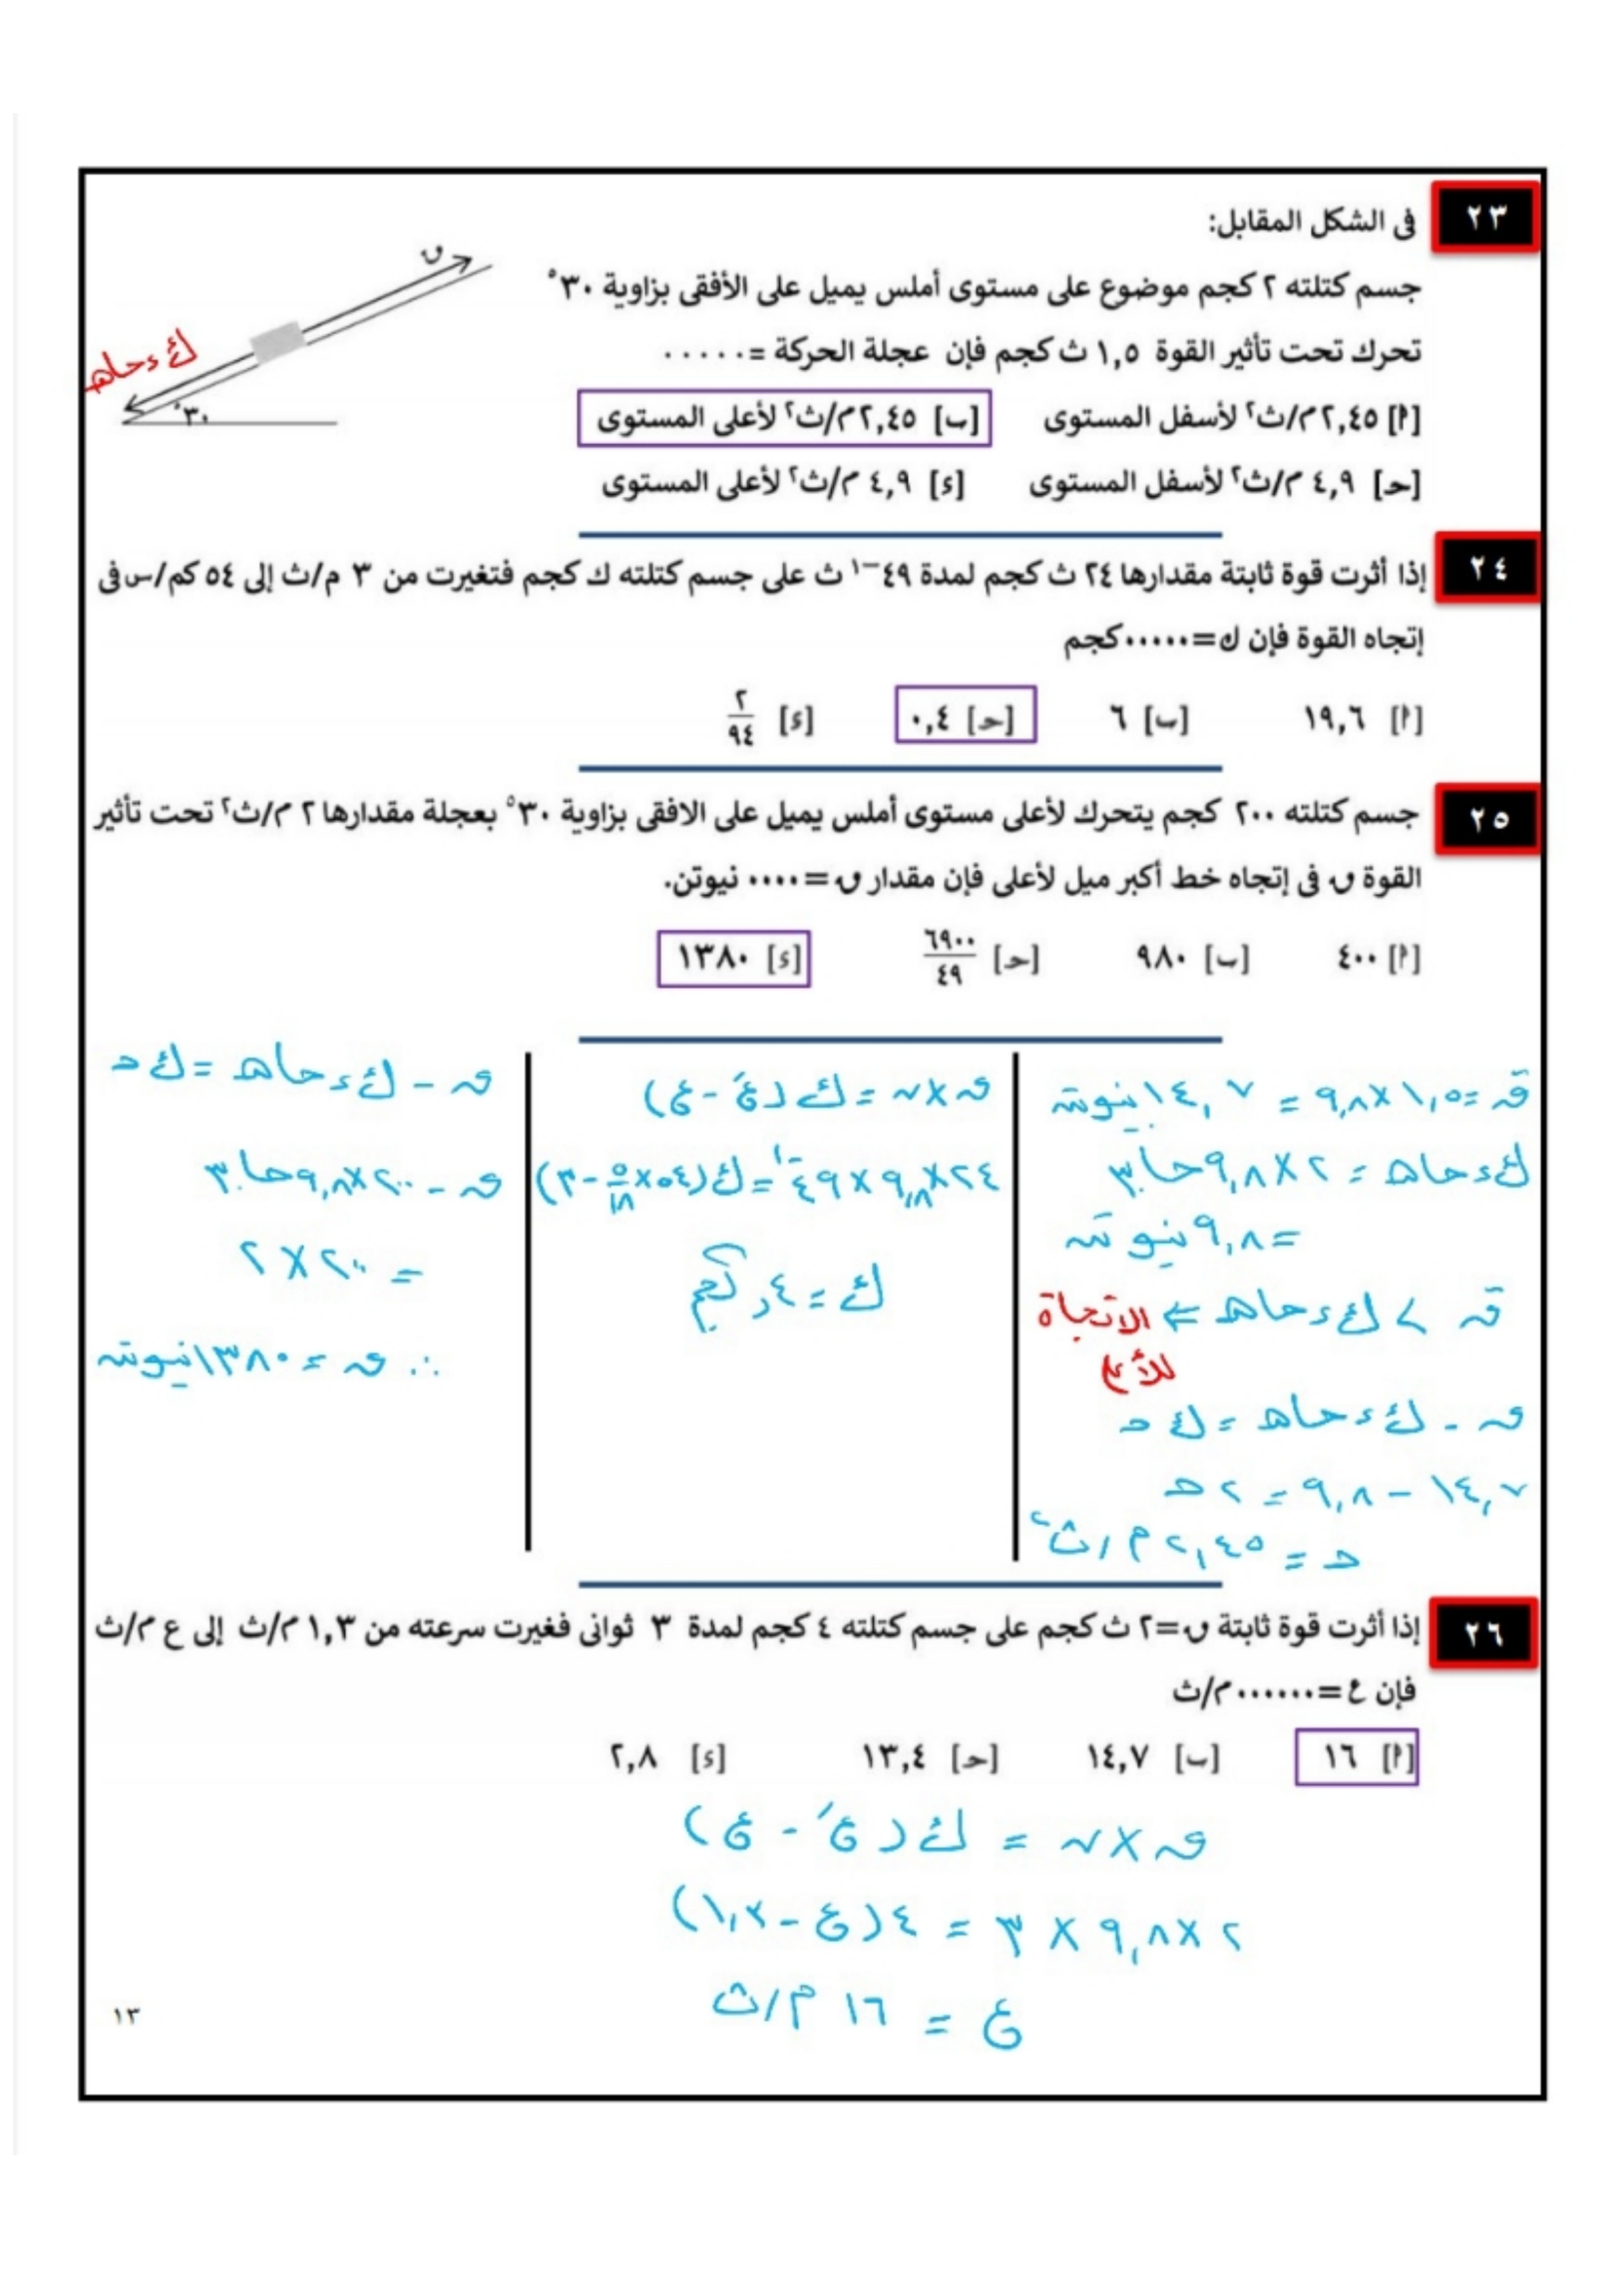 ٢٣
فى الشكل المقابل:
جسم كتلته ٢ كجم موضوع على مستوى أملس يميل على الأفقى بزاوية ٣٠°
تحرك تحت تأثير القوة ١,٥ ث كجم فإن عجلة الحركة =٠٠٠٠٠
[أ] ٢,٤٥م/ث٢ لأسفل المستوى [ب] ٢,٤٥م/ث٢ لأعلى المستوى
[حـ] ٤,٩ م/ث٢ لأسفل المستوى [ء] ٤,٩ م/ث٢ لأعلى المستوى
ق
ك ء حا هـ
٣٠°
٢٤
إذا أثرت قوة ثابتة مقدارها ٢٤ ث كجم لمدة ٤٩−١ ث على جسم كتلته ك كجم فتغيرت من ٣ م/ث إلى ٥٤ كم/س فى
إتجاه القوة فإن ك=٠٠٠٠٠كجم
[أ] ١٩,٦ [ب] ٦ [حـ] ٠,٤ [ء] ٢/٩٤
٢٥
جسم كتلته ٢٠٠ كجم يتحرك لأعلى مستوى أملس يميل على الافقى بزاوية ٣٠° بعجلة مقدارها ٢ م/ث٢ تحت تأثير
القوة ق فى إتجاه خط أكبر ميل لأعلى فإن مقدار ق=٠٠٠٠ نيوتن.
[أ] ٤٠٠ [ب] ٩٨٠ [حـ] ٦٩٠٠/٤٩ [ء] ١٣٨٠
ق = ١,٥×٩,٨ = ١٤,٧ نيوتن
ك ء حا هـ = ٢×٩,٨ حا ٣٠
= ٩,٨ نيوتن
ق > ك ء حا هـ ⇐ الاتجاة
للأعلى
ق - ك ء حا هـ = ك حـ
١٤,٧ − ٩,٨ = ٢ حـ
حـ = ٢,٤٥ م/ث٢
ق×ن = ك (عَ - ع)
٢٤×٩,٨×٤٩−١ = ك(٥٤×٥/١٨ - ٣)
ك = ٤, كجم
ق - ك ء حا هـ = ك حـ
ق - ٢٠٠×٩,٨ حا ٣٠
= ٢٠٠ × ٢
∴ ق = ١٣٨٠ نيوتن
٢٦
إذا أثرت قوة ثابتة ق=٢ ث كجم على جسم كتلته ٤ كجم لمدة ٣ ثوانى فغيرت سرعته من ١,٣ م/ث إلى ع م/ث
فإن ع =٠٠٠٠٠٠م/ث
[أ] ١٦ [ب] ١٤,٧ [حـ] ١٣,٤ [ء] ٢,٨
ق×ن = ك (عَ - ع)
٢×٩,٨ × ٣ = ٤(ع - ١,٣)
ع = ١٦ م/ث
١٣